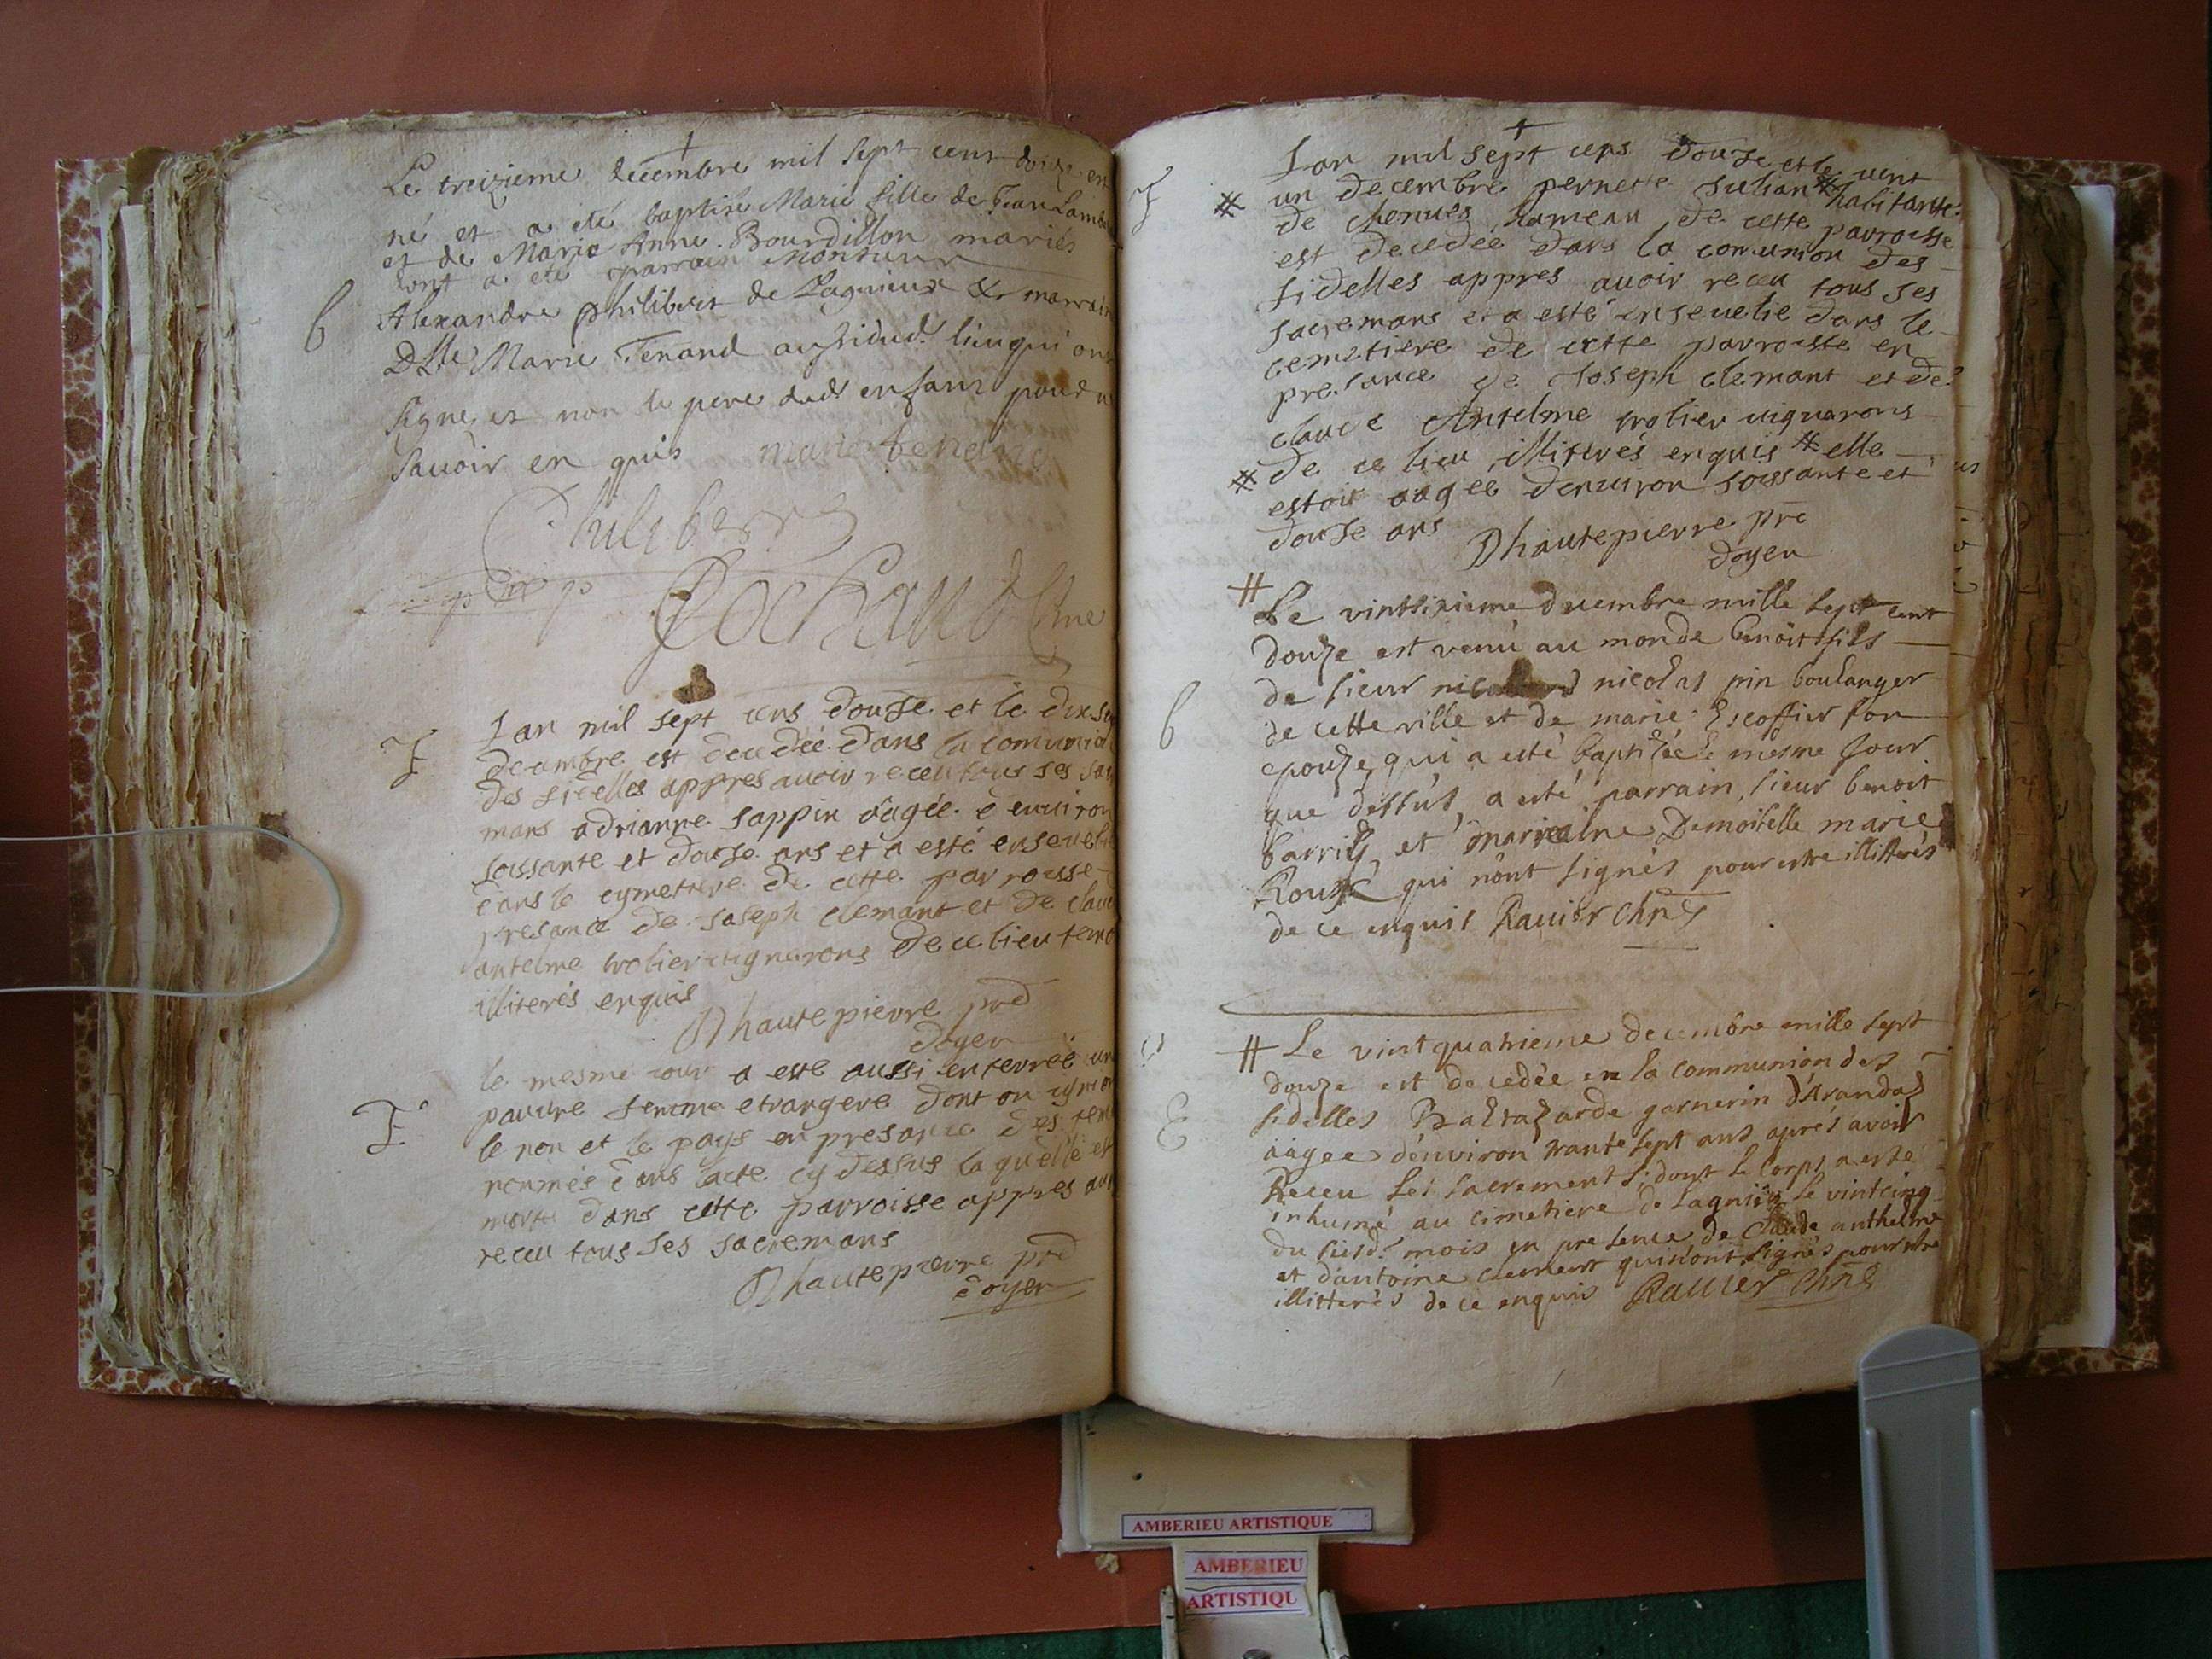 Le treizieme decembre mil sept cent douze est
né et a eté baptisé Marie fille de Jean Lambe
et de Marie Anne Bourdillon mariés
dont a eté parrain Monsieur
b
Alexandre philibert de Lagnieux & marrain
Dlle Marie Tenand ausdud. lieu qui ont
signe et non le pere dud enfant pour n
savoir en quis marie tenand
Philibert
Cochaud
F
Lan mil sept cens douse et le dix se
decembre est decedée dans la comunion
des fidelles appres avoir receu tous ses sac
mans adrianne sappin aagée d environ
soissante et douse ans et a esté ensevelie
dans le cymetiere de cette parroisse
presance de Joseph clemant et de clau
antelme trolier vignerons de ce lieu temo
illiterés enquis
Dhautepierre pre
doyen
F
le mesme jour a esté aussi enterrée un
pauvre femme etrangere dont on ignore
le non et le pays en presance des tem
nommés dans lacte cy dessus laquelle est
morte dans cette parroisse appres avo
receu tous ses sacremans
Dhautepierre pre
doyen
F
Lan mil sept cens douse et le vint
# un decembre pernette Julian # habitante
de chenues hameau de cette parroisse
est decedée dans la comunion des
fidelles appres avoir receu tous ses
sacremans et a esté ensevelie dans le
cemetiere de cette parroisse en
presance de Joseph clemant et de
claude Antelme trolier vignarons
# de ce lieu illiterés enquis # elle
estoit aagee denviron soissante et
douse ans Dhautepierre pre
doyen
#
Le vintsixieme decembre mille sept cent
douze est venu au monde benoit fils
de sieur nicolas pin boulanger
b
de cette ville et de marie Escoffier son
epouze qui a esté baptizé le mesme jour
que dessus, a esté parrain, sieur benoit
et marraine Demoiselle marie
Roux qui n'ont signés pour estre illitterés
de ce enquis Ravier chne
# Le vint quatrieme decembre mille sept
douze est decedée en la communion des
E
fidelles Baltazarde garnerin d'Arandas
aagee d'environ trante sept ans aprés avoir
Receu les sacrements, dont le corps a esté
inhumé au cimetiere de Lagnieu le vintcinq
du susd. mois en presence de Claude anthelme
et d'antoine clement qui n'ont signés pour etre
illitterés de ce enquis Ravier chne
AMBERIEU ARTISTIQUE
AMBERIEU
ARTISTIQU